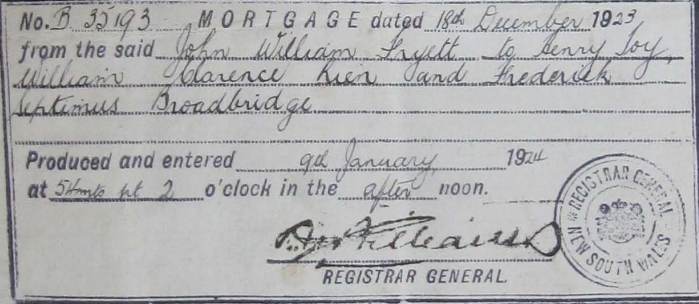 No. B 35193 MORTGAGE dated 18th December 1923
from the said John William Fryett to Henry Joy,
William Clarence Kien and Frederick
Septimus Broadbridge
Produced and entered 9th January, 1924
at pt 2 o'clock in the after noon.
REGISTRAR GENERAL.
REGISTRAR GENERAL
NEW SOUTH WALES